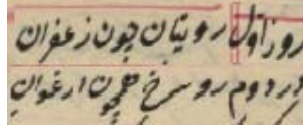 روز اول رویتان چون زعفران
در دوم رو سرخ همچون ارغوان